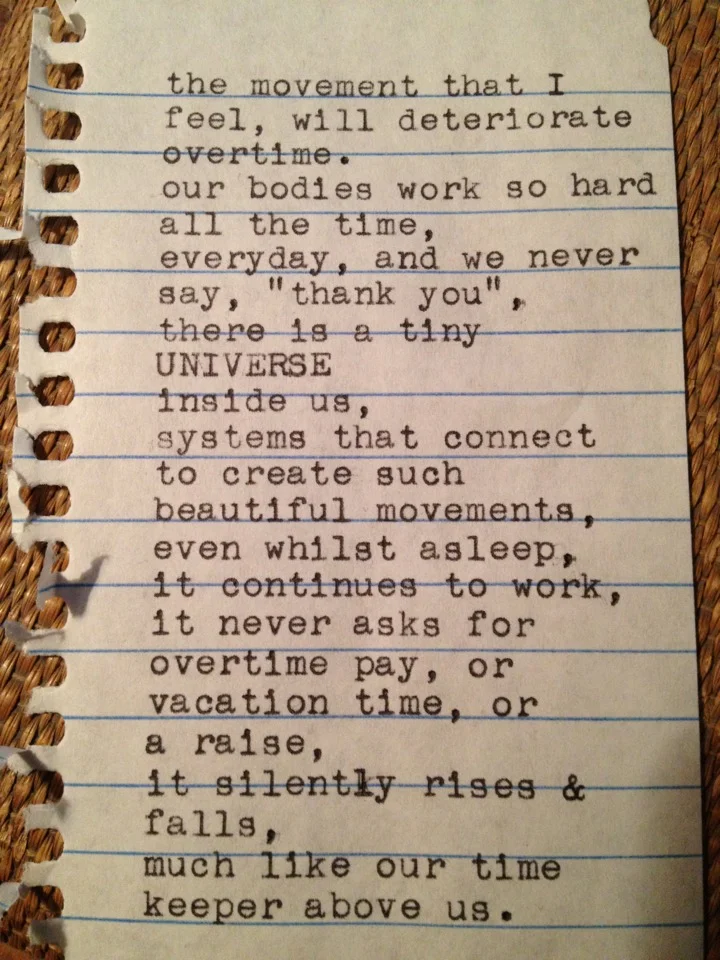 the movement that I
feel, will deteriorate
overtime.
our bodies work so hard
all the time,
everyday, and we never
say, "thank you",
there is a tiny
UNIVERSE
inside us,
systems that connect
to create such
beautiful movements,
even whilst asleep,
it continues to work,
it never asks for
overtime pay, or
vacation time, or
a raise,
it silently rises &
falls,
much like our time
keeper above us.